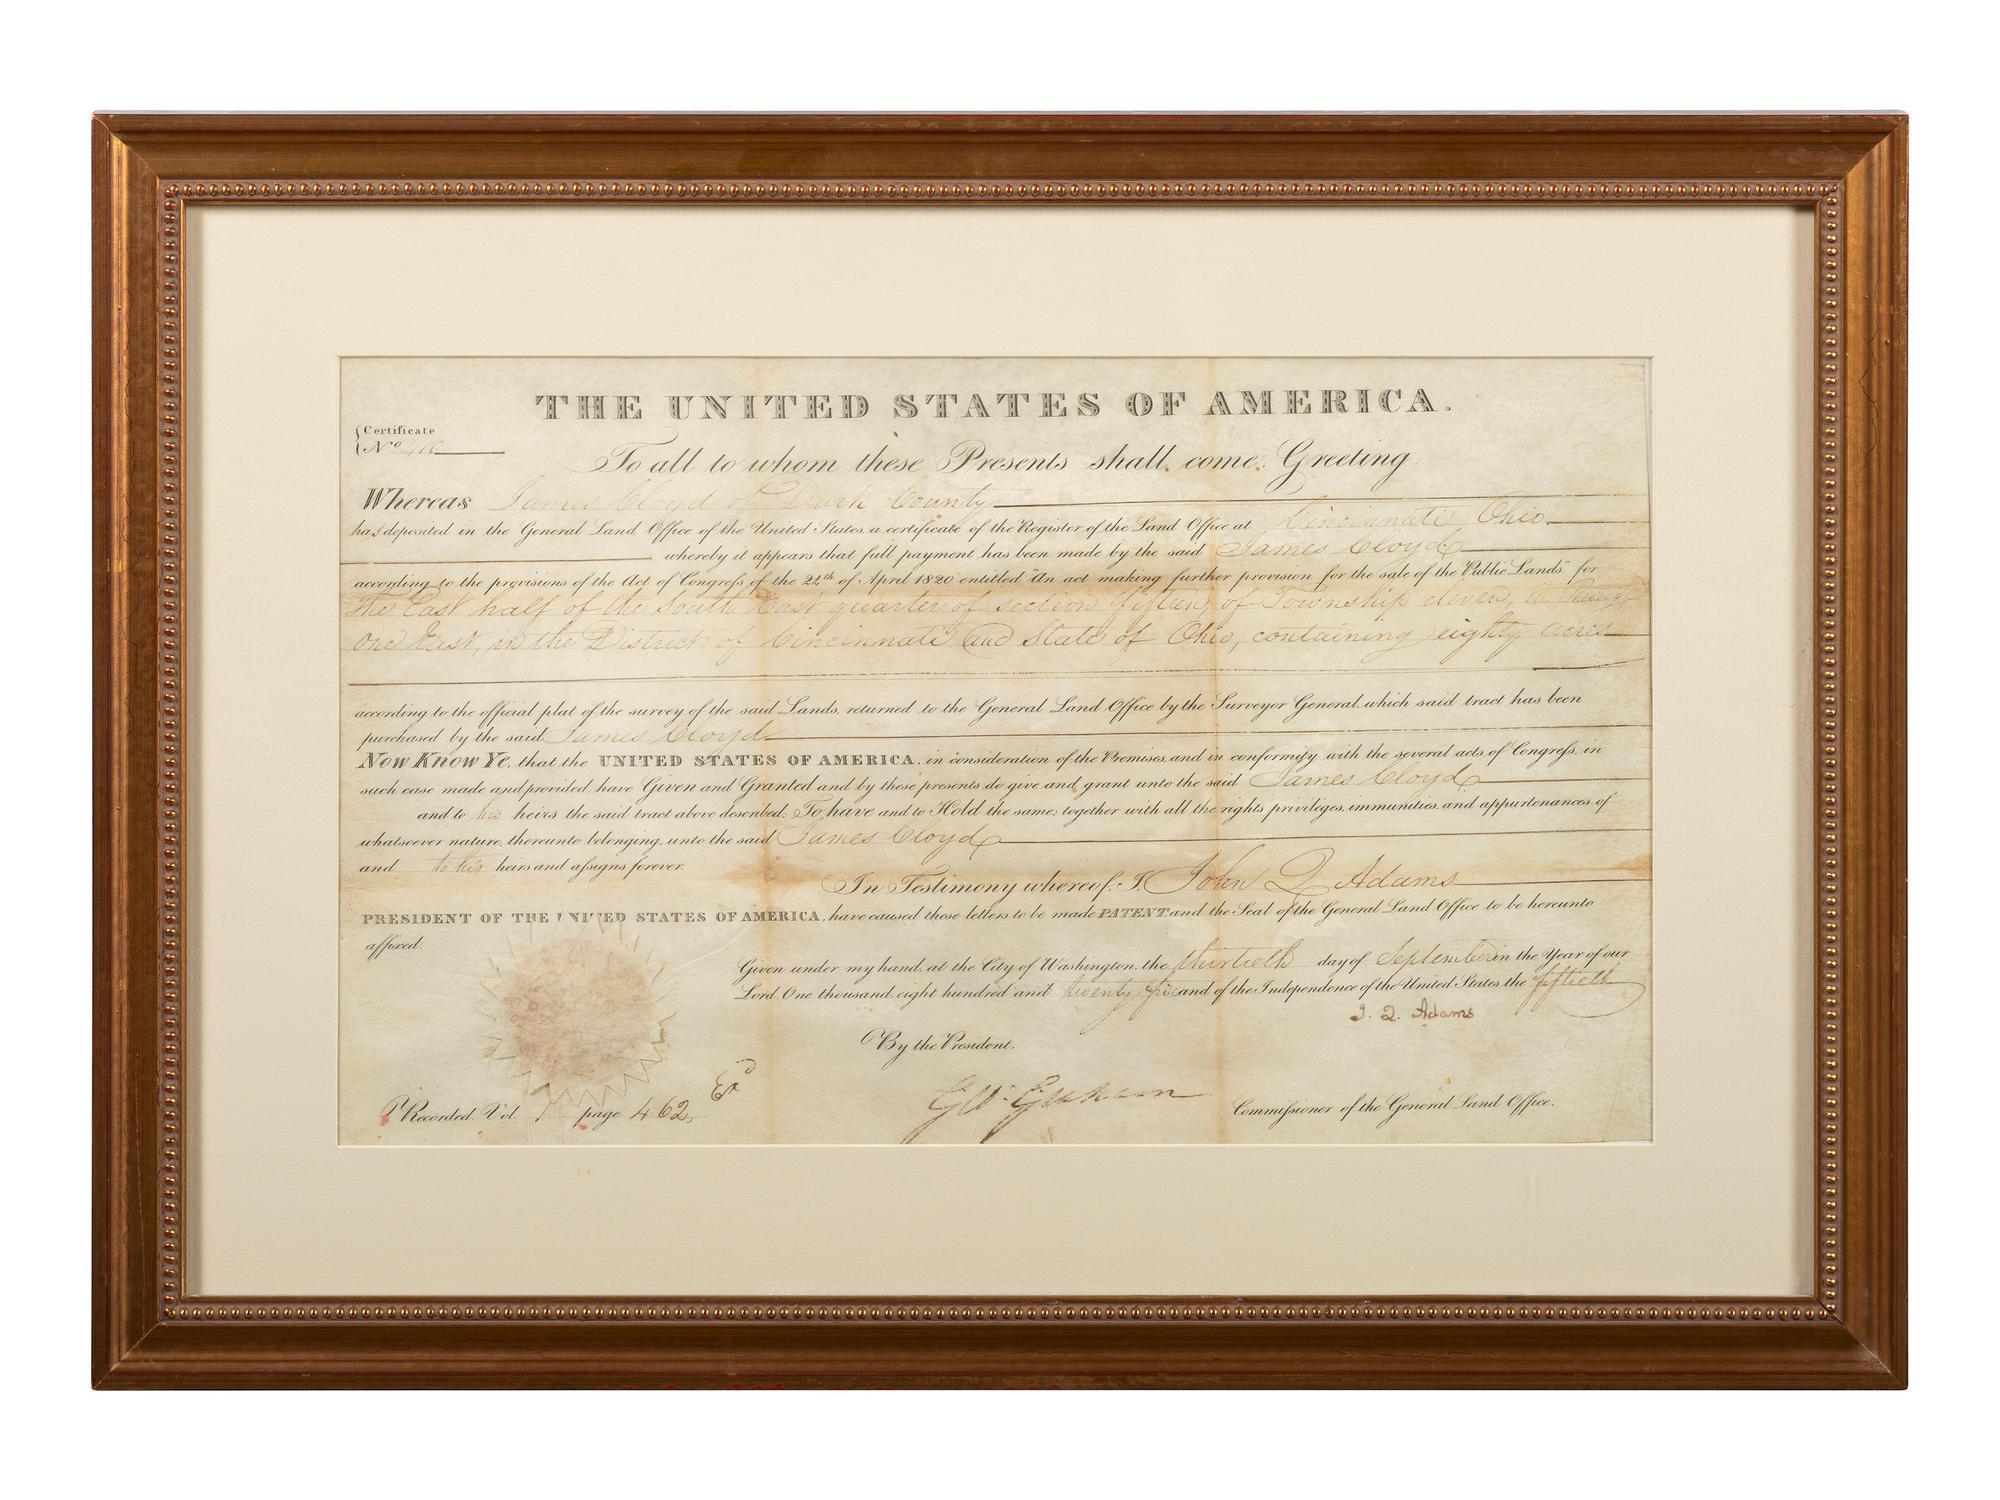 THE UNITED STATES OF AMERICA.
Certificate
No.
To all to whom these Presents shall come, Greeting
Whereas James Cloyd of Dark County
has deposited in the General Land Office of the United States, a certificate of the Register of the Land Office at Cincinnati Ohio
whereby it appears that full payment has been made by the said James Cloyd
according to the provisions of the Act of Congress of the 24th of April 1820 entitled "An act making further provision for the sale of the Public Lands" for
The East half of the South East quarter of section fifteen, of Township eleven, in Range
One East, in the District of Cincinnati and State of Ohio, containing eighty acres
according to the official plat of the survey of the said Lands, returned to the General Land Office by the Surveyor General, which said tract has been
purchased by the said James Cloyd
Now Know Ye, that the UNITED STATES OF AMERICA, in consideration of the Premises, and in conformity with the several acts of Congress, in
such case made and provided, have Given and Granted and by these presents do give and grant unto the said James Cloyd
and to his heirs the said tract above described; To have and to Hold the same, together with all the rights, privileges, immunities, and appurtenances of
whatsoever nature, thereunto belonging, unto the said James Cloyd
and to his heirs and assigns forever.
In Testimony whereof, I, John Q Adams
PRESIDENT OF THE UNITED STATES OF AMERICA, have caused these letters to be made PATENT and the Seal of the General Land Office to be hereunto
affixed.
Given under my hand, at the City of Washington, the thirtieth day of September in the Year of our
Lord, One thousand eight hundred and twenty five and of the Independence of the United States the fiftieth
J. Q. Adams
By the President.
Geo: Graham Commissioner of the General Land Office.
Recorded, Vol. 1 page 462,